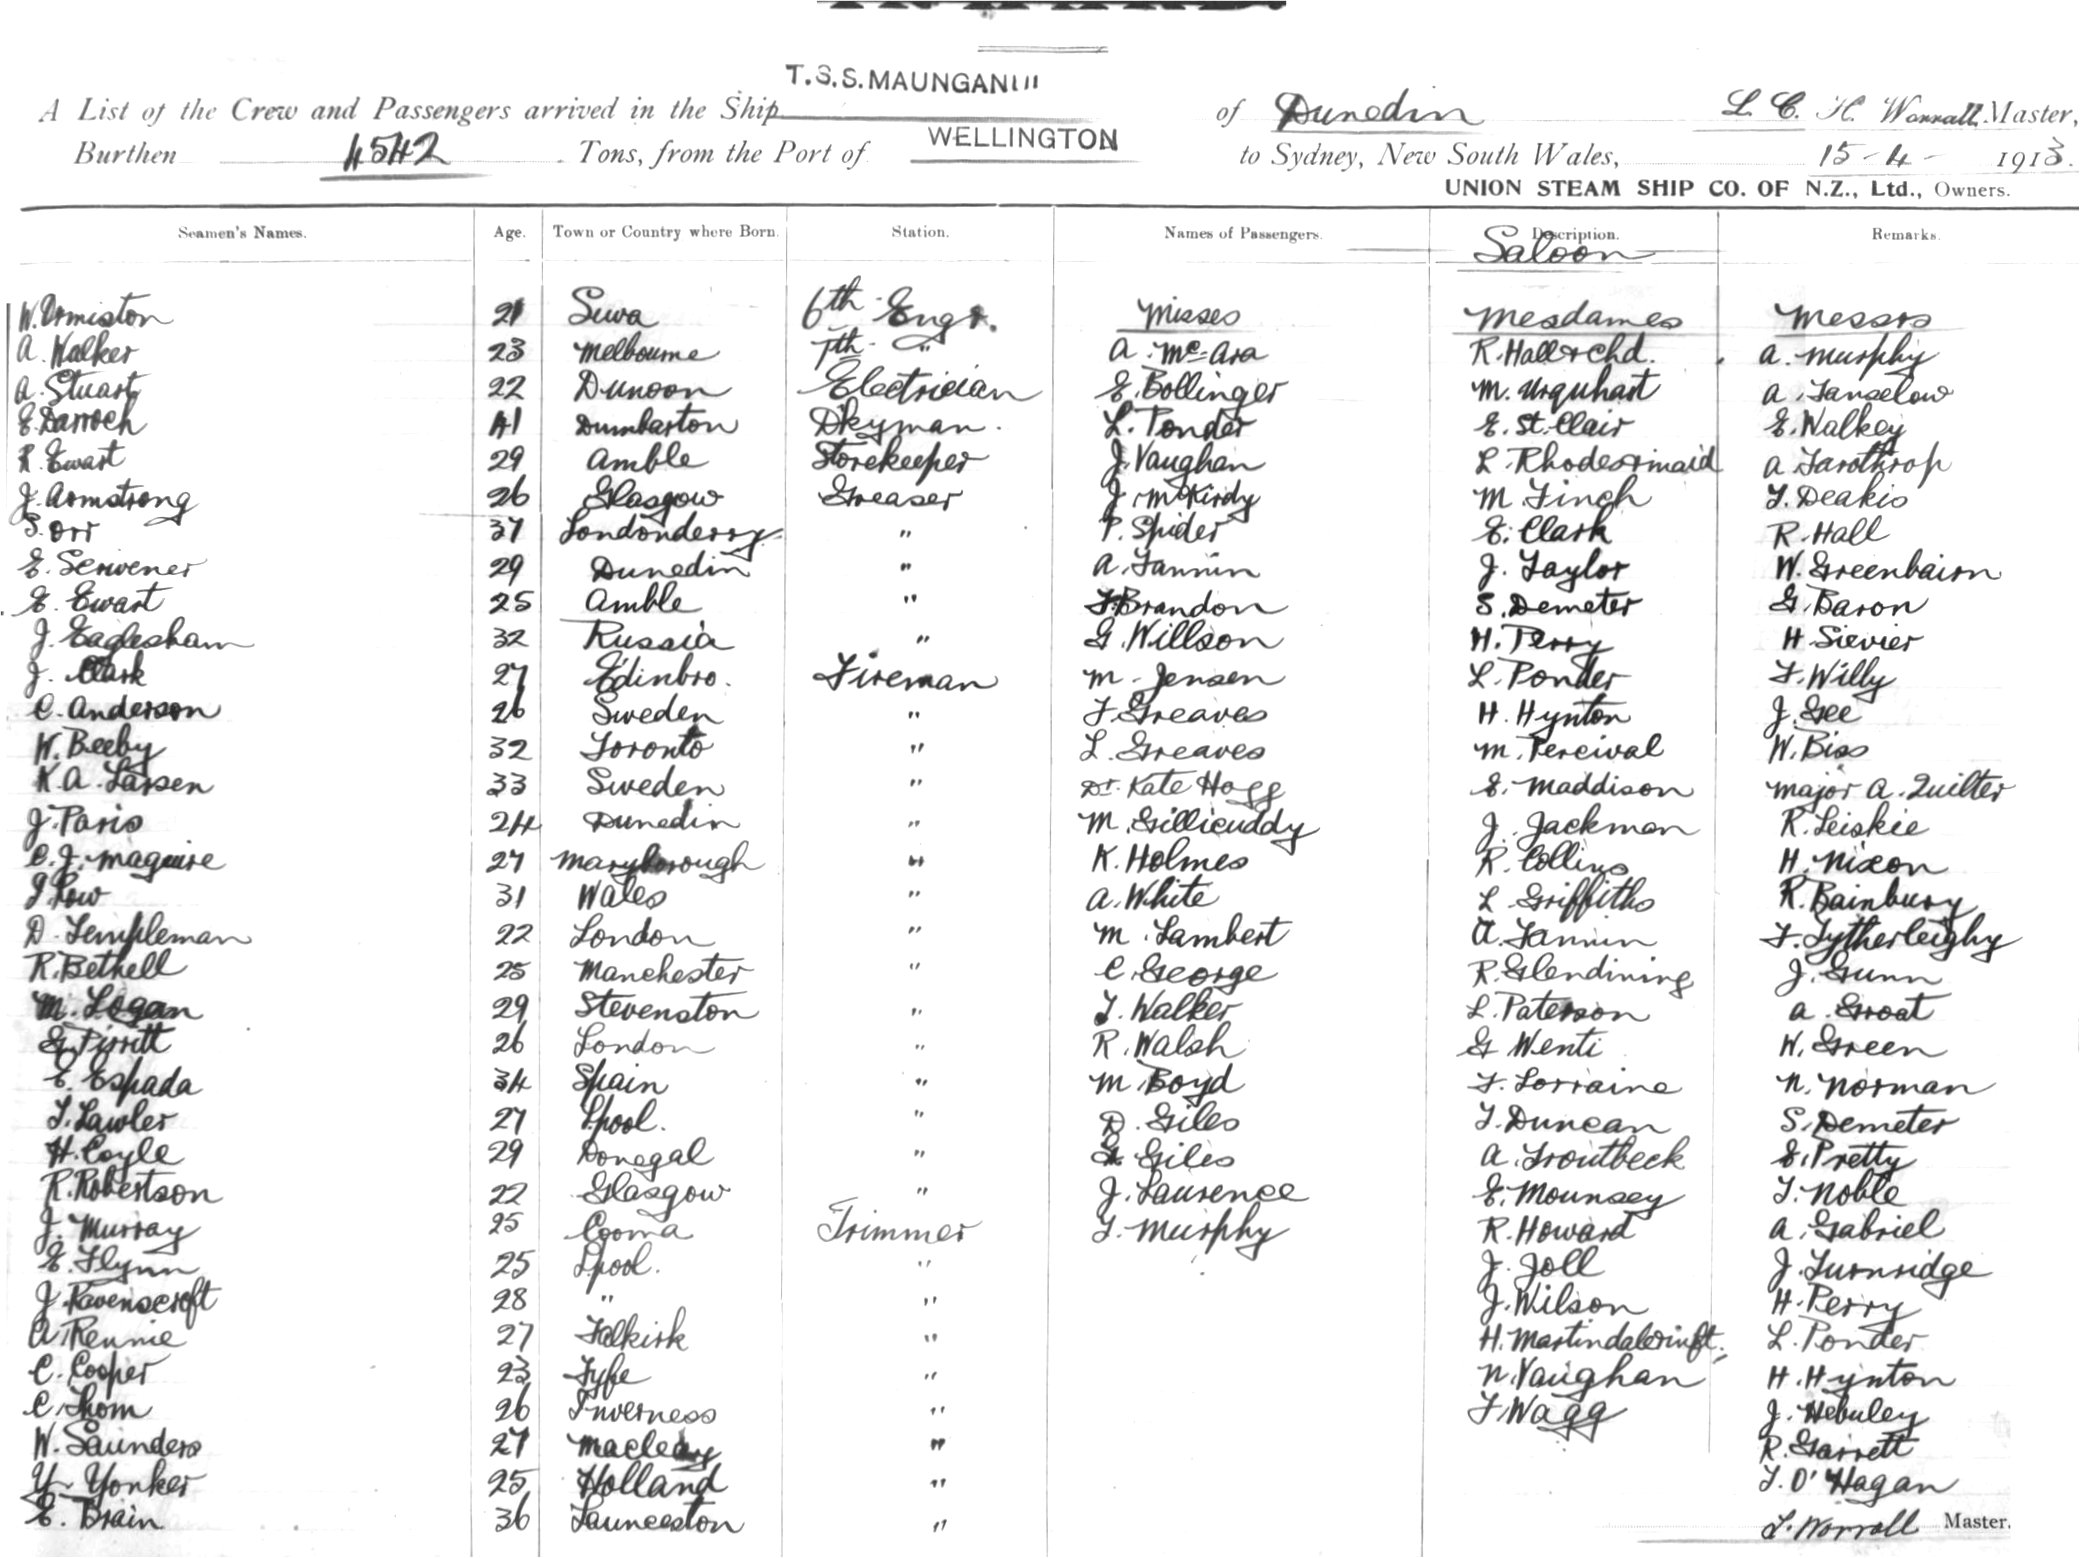 T.S.S. MAUNGANUI
A List of the Crew and Passengers arrived in the Ship of Dunedin L. C. H. Worrall Master,
WELLINGTON
Burthen 4542 Tons, from the Port of to Sydney, New South Wales, 15-4- 1913.
UNION STEAM SHIP CO. OF N.Z., Ltd., Owners.
Seamen's Names. Age. Town or Country where Born. Station. Names of Passengers. Description. Remarks.
Saloon
W. Ormiston 21 Suva 6th Engr. Misses Mesdames Messrs
A. Walker 23 Melbourne 7th " A. McAra R. Hall & Chd. A. Murphy
A. Stuart 22 Dunoon Electrician E. Bollinger M. Urquhart A. Fanselow
E. Darroch 41 Dumbarton Dkyman. L. Ponder E. St. Clair E. Walkey
R. Ewart 29 Amble Storekeeper J. Vaughan L. Rhodes & maid A.
J. Armstrong 26 Glasgow Greaser J. McKirdy M. Finch F. Deakis
S. Orr 37 Londonderry " P. Spider E. Clark R. Hall
E. Scrivener 29 Dunedin " A. Fannin J. Taylor W. Greenbairn
E. Ewart 25 Amble " F. Brandon S. Demeter G. Baron
J. Eaglesham 32 Russia " G. Willson H. Perry H. Sievier
J. Clark 27 Edinbro. Fireman M. Jensen L. Ponder F. Willy
C. Anderson 26 Sweden " F. Greaves H. Hynton J. Gee
W. Beeby 32 Toronto " L. Greaves M. Percival W. Biss
K. A. Larsen 33 Sweden " Dr. Kate Hogg E. Maddison Major A. Quilter
J. Paris 24 Dunedin " M. Gillicuddy J. Jackman R. Leiskie
C. J. Maguire 27 Maryborough " K. Holmes R. Collins H. Nixon
J. Pow 31 Wales " A. White L. Griffiths R. Bainbury
D. Templeman 22 London " M. Lambert A. Fannin F. Tytherleighy
R. Bethell 25 Manchester " C. George R. Glendining J. Gunn
M. Logan 29 Stevenston " T. Walker L. Paterson A. Groat
G. Pirritt 26 London " R. Walsh G. Wenti W. Green
E. Espada 34 Spain " M. Boyd F. Lorraine N. Norman
T. Lawler 27 L'pool. " D. Giles T. Duncan S. Demeter
H. Coyle 29 Donegal " G. Giles A. Troutbeck E. Pretty
R. Robertson 22 Glasgow " J. Laurence E. Mounsey T. Noble
J. Murray 25 Cooma Trimmer T. Murphy R. Howard A. Gabriel
E. Flynn 25 L'pool. " J. Joll J. Turnridge
J. Ravenscroft 28 " " J. Wilson H. Perry
A. Rennie 27 Falkirk " H. Martindale & inft. L. Ponder
C. Cooper 23 Fyfe " N. Vaughan H. Hynton
C. Thom 26 Inverness " F. Wagg J. Hebuley
W. Saunders 27 Macleay " R. Garrett
Y. Yonker 25 Holland " T. O'Hagan
E. Brain 36 Launceston " L. Worrall Master.